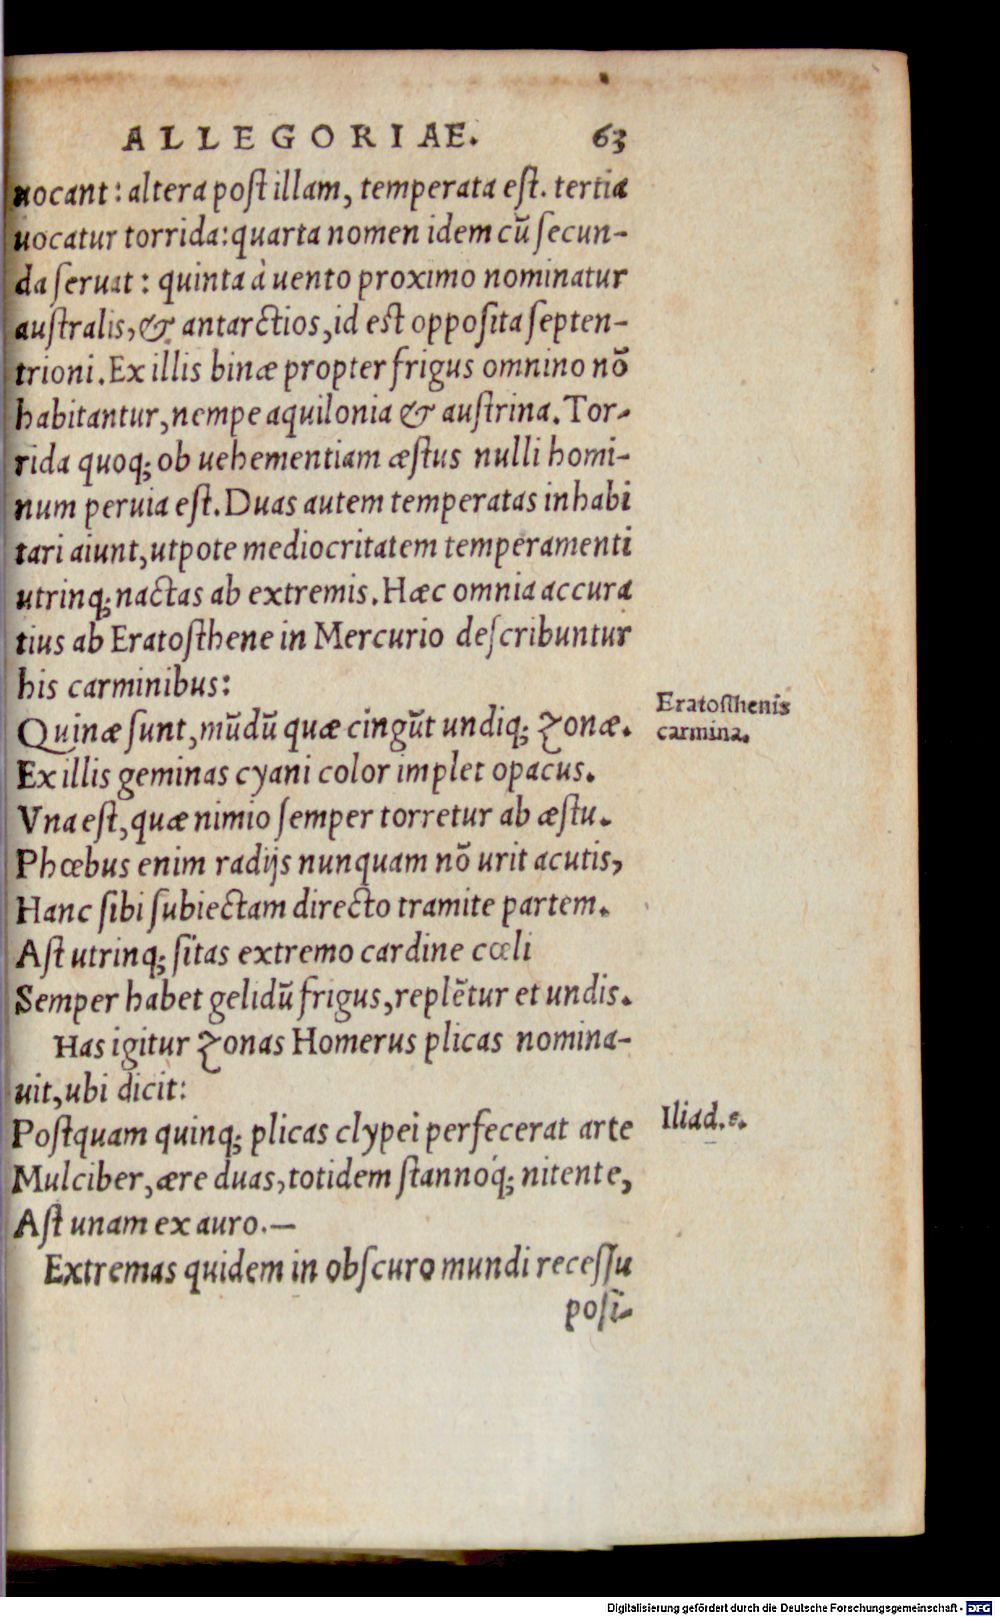 ALLEGORIAE. 63
uocant: altera post illam, temperata est. tertia
uocatur torrida: quarta nomen idem cū secun-
da seruat: quinta à uento proximo nominatur
australis, & antarctios, id est opposita septen-
trioni. Ex illis binæ propter frigus omnino nō
habitantur, nempe aquilonia & austrina. Tor-
rida quoq; ob uehementiam æstus nulli homi-
num peruia est. Duas autem temperatas inhabi
tari aiunt, utpote mediocritatem temperamenti
utrinq; nactas ab extremis. Hæc omnia accura
tius ab Eratosthene in Mercurio describuntur
his carminibus:
Eratosthenis
carmina.
Quinæ sunt, mūdū quæ cingūt undiq; zonæ.
Ex illis geminas cyani color implet opacus.
Vna est, quæ nimio semper torretur ab æstu.
Phœbus enim radijs nunquam nō urit acutis,
Hanc sibi subiectam directo tramite partem.
Ast utrinq; sitas extremo cardine cœli
Semper habet gelidū frigus, replētur et undis.
Has igitur zonas Homerus plicas nomina-
uit, ubi dicit:
Iliad. s.
Postquam quinq; plicas clypei perfecerat arte
Mulciber, ære duas, totidem stannóq; nitente,
Ast unam ex auro.—
Extremas quidem in obscuro mundi recessu
posi-
Digitalisierung gefördert durch die Deutsche Forschungsgemeinschaft - DFG